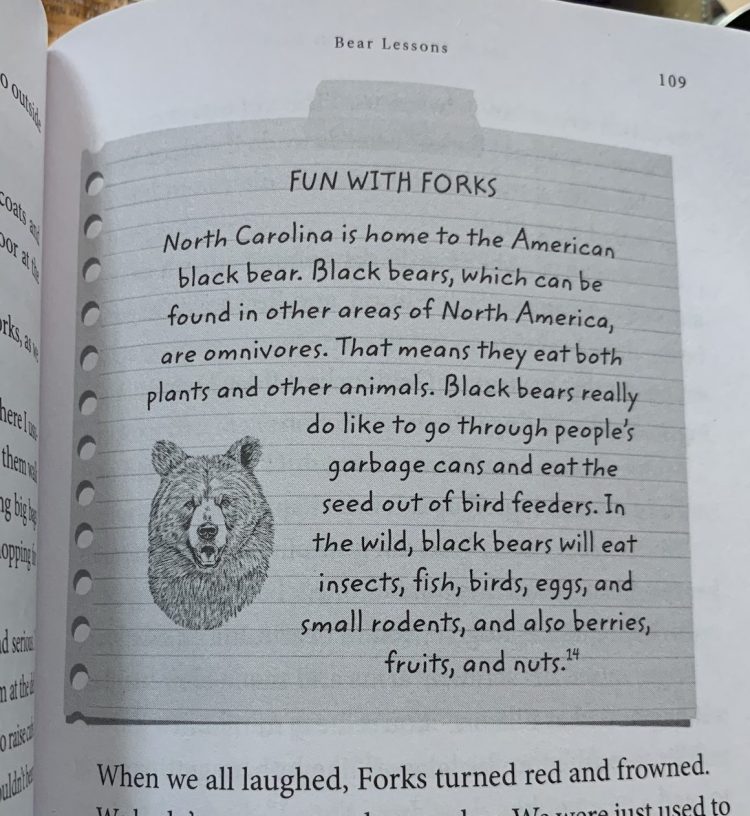 Bear Lessons
109
FUN WITH FORKS
North Carolina is home to the American
black bear. Black bears, which can be
found in other areas of North America,
are omnivores. That means they eat both
plants and other animals. Black bears really
do like to go through people's
garbage cans and eat the
seed out of bird feeders. In
the wild, black bears will eat
insects, fish, birds, eggs, and
small rodents, and also berries,
fruits, and nuts.14
When we all laughed, Forks turned red and frowned.
We were just used to